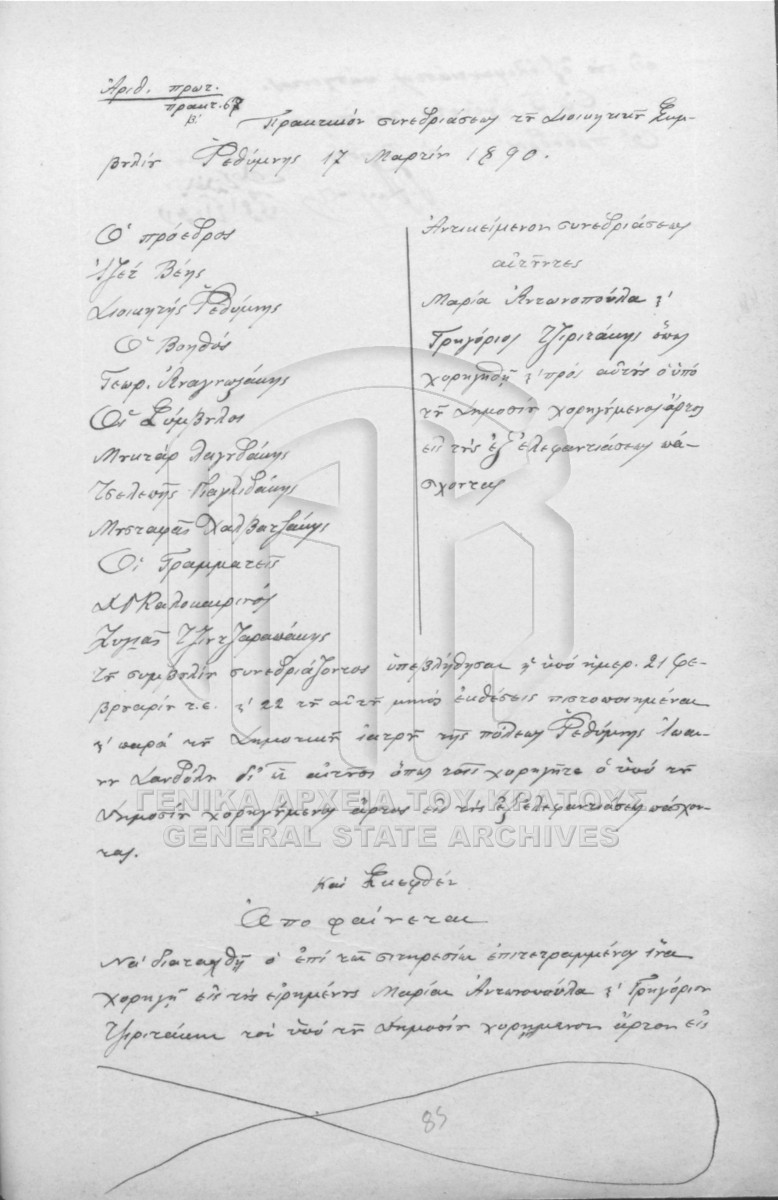 Ἀριθ. πρωτ.
πρακτ. 67
β'
Πρακτικὸν συνεδριάσεως τῆς Διοικητικῆς Συμ-
βουλίου Ῥεθύμνης 17 Μαρτίου 1890.
Ὁ πρόεδρος
Ἰζέτ Βέης
Διοικητής Ῥεθύμνης
Ὁ Βοηθός
Γεωρ. Ἀναγνωστάκης
Οἱ Σύμβουλοι
Μουκτάρ Λαγουδάκης
Τσελεπῆς
Μουσταφᾶς Χαλβατζάκης
Οἱ Γραμματεῖς
Καλοκαιρινός
Τζιντζαραπάκης
Ἀντικείμενον συνεδριάσεως
αἰτοῦντες
Μαρία Ἀντωνοπούλα ϗ'
Γρηγόριος Τζιριτάκης ὅπως
χορηγηθῇ ϗ' πρός αὐτούς ὁ ὑπό
τοῦ Δημοσίου χορηγούμενος ἄρτος
εἰς τούς ἐξ ἐλεφαντιάσεως πά-
σχοντας
τοῦ συμβουλίου συνεδριάζοντος ὑπεβλήθησαν ἡ ὑπό ἡμερ. 21 Φε-
βρουαρίου τ.ε. ϗ' 22 τοῦ αὐτοῦ μηνός ἐκθέσεις πιστοποιημέναι
ϗ' παρά τοῦ Δημοτικοῦ ἰατροῦ τῆς πόλεως Ῥεθύμνης Ἰωάν-
νου Σανδόλου δι' ὧν αἰτοῦσι ὅπως τοῖς χορηγῆται ὁ ὑπό τοῦ
Δημοσίου χορηγούμενος ἄρτος εἰς τούς ἐξ ἐλεφαντιάσεως πάσχον-
τας.
Καί Σκεφθέν
Ἀποφαίνεται
Νά διαταχθῇ ὁ ἐπί τῶν σιτηρεσίων ἐπιτετραμμένος ἵνα
χορηγῇ εἰς τούς εἰρημένους Μαρίαν Ἀντωνοπούλα ϗ' Γρηγόριον
Τζιριτάκην τόν ὑπό τοῦ Δημοσίου χορηγούμενον ἄρτον εἰς
85
ΓΕΝΙΚΑ ΑΡΧΕΙΑ ΤΟΥ ΚΡΑΤΟΥΣ
GENERAL STATE ARCHIVES